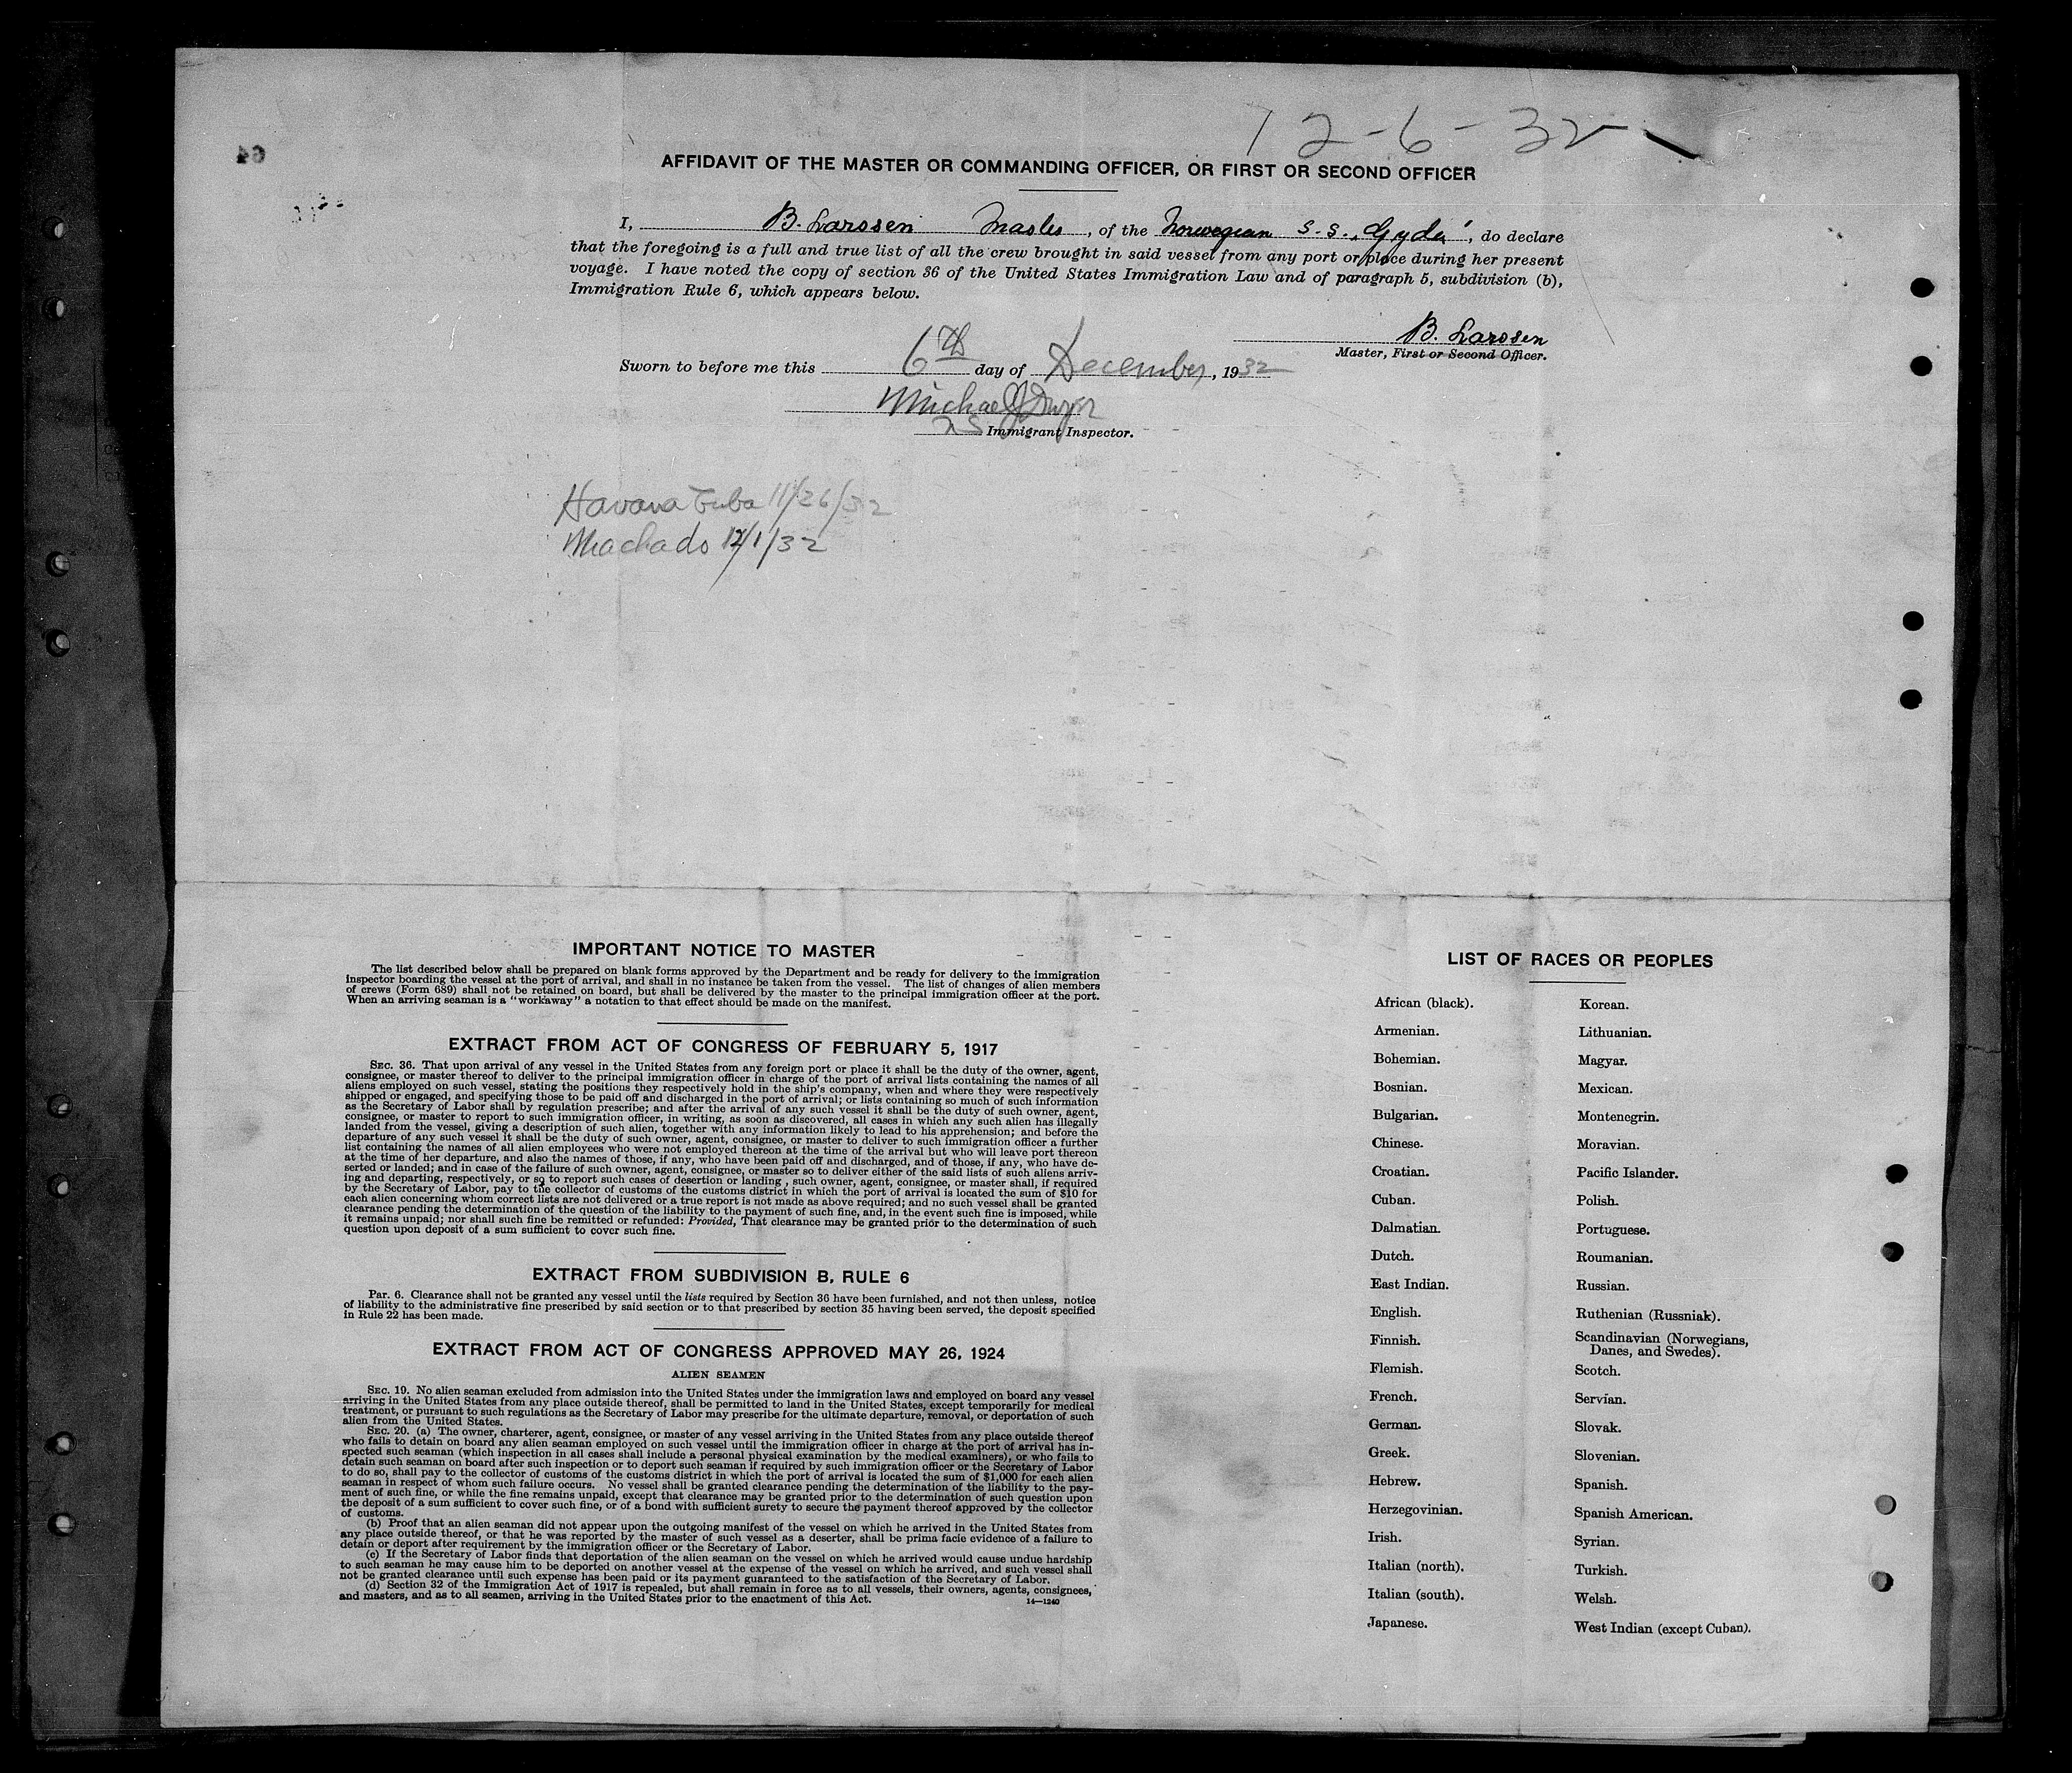 12-6-32
AFFIDAVIT OF THE MASTER OR COMMANDING OFFICER, OR FIRST OR SECOND OFFICER
I, B. Larssen Master, of the Norwegian S.S. „Gyda", do declare
that the foregoing is a full and true list of all the crew brought in said vessel from any port or place during her present
voyage. I have noted the copy of section 36 of the United States Immigration Law and of paragraph 5, subdivision (b),
Immigration Rule 6, which appears below.
B. Larssen
Master, First or Second Officer.
Sworn to before me this 6th day of December, 1932
Michael J Dwyer
Immigrant Inspector.
Havana Cuba 11/26/32
Machado 12/1/32
IMPORTANT NOTICE TO MASTER
The list described below shall be prepared on blank forms approved by the Department and be ready for delivery to the immigration
inspector boarding the vessel at the port of arrival, and shall in no instance be taken from the vessel. The list of changes of alien members
of crews (Form 689) shall not be retained on board, but shall be delivered by the master to the principal immigration officer at the port.
When an arriving seaman is a "workaway" a notation to that effect should be made on the manifest.
EXTRACT FROM ACT OF CONGRESS OF FEBRUARY 5, 1917
SEC. 36. That upon arrival of any vessel in the United States from any foreign port or place it shall be the duty of the owner, agent,
consignee, or master thereof to deliver to the principal immigration officer in charge of the port of arrival lists containing the names of all
aliens employed on such vessel, stating the positions they respectively hold in the ship's company, when and where they were respectively
shipped or engaged, and specifying those to be paid off and discharged in the port of arrival; or lists containing so much of such information
as the Secretary of Labor shall by regulation prescribe; and after the arrival of any such vessel it shall be the duty of such owner, agent,
consignee, or master to report to such immigration officer, in writing, as soon as discovered, all cases in which any such alien has illegally
landed from the vessel, giving a description of such alien, together with any information likely to lead to his apprehension; and before the
departure of any such vessel it shall be the duty of such owner, agent, consignee, or master to deliver to such immigration officer a further
list containing the names of all alien employees who were not employed thereon at the time of the arrival but who will leave port thereon
at the time of her departure, and also the names of those, if any, who have been paid off and discharged, and of those, if any, who have de-
serted or landed; and in case of the failure of such owner, agent, consignee, or master so to deliver either of the said lists of such aliens arriv-
ing and departing, respectively, or so to report such cases of desertion or landing , such owner, agent, consignee, or master shall, if required
by the Secretary of Labor, pay to the collector of customs of the customs district in which the port of arrival is located the sum of $10 for
each alien concerning whom correct lists are not delivered or a true report is not made as above required; and no such vessel shall be granted
clearance pending the determination of the question of the liability to the payment of such fine, and, in the event such fine is imposed, while
it remains unpaid; nor shall such fine be remitted or refunded: Provided, That clearance may be granted prior to the determination of such
question upon deposit of a sum sufficient to cover such fine.
EXTRACT FROM SUBDIVISION B, RULE 6
Par. 6. Clearance shall not be granted any vessel until the lists required by Section 36 have been furnished, and not then unless, notice
of liability to the administrative fine prescribed by said section or to that prescribed by section 35 having been served, the deposit specified
in Rule 22 has been made.
EXTRACT FROM ACT OF CONGRESS APPROVED MAY 26, 1924
ALIEN SEAMEN
SEC. 19. No alien seaman excluded from admission into the United States under the immigration laws and employed on board any vessel
arriving in the United States from any place outside thereof, shall be permitted to land in the United States, except temporarily for medical
treatment, or pursuant to such regulations as the Secretary of Labor may prescribe for the ultimate departure, removal, or deportation of such
alien from the United States.
SEC. 20. (a) The owner, charterer, agent, consignee, or master of any vessel arriving in the United States from any place outside thereof
who fails to detain on board any alien seaman employed on such vessel until the immigration officer in charge at the port of arrival has in-
spected such seaman (which inspection in all cases shall include a personal physical examination by the medical examiners), or who fails to
detain such seaman on board after such inspection or to deport such seaman if required by such immigration officer or the Secretary of Labor
to do so, shall pay to the collector of customs of the customs district in which the port of arrival is located the sum of $1,000 for each alien
seaman in respect of whom such failure occurs. No vessel shall be granted clearance pending the determination of the liability to the pay-
ment of such fine, or while the fine remains unpaid, except that clearance may be granted prior to the determination of such question upon
the deposit of a sum sufficient to cover such fine, or of a bond with sufficient surety to secure the payment thereof approved by the collector
of customs.
(b) Proof that an alien seaman did not appear upon the outgoing manifest of the vessel on which he arrived in the United States from
any place outside thereof, or that he was reported by the master of such vessel as a deserter, shall be prima facie evidence of a failure to
detain or deport after requirement by the immigration officer or the Secretary of Labor.
(c) If the Secretary of Labor finds that deportation of the alien seaman on the vessel on which he arrived would cause undue hardship
to such seaman he may cause him to be deported on another vessel at the expense of the vessel on which he arrived, and such vessel shall
not be granted clearance until such expense has been paid or its payment guaranteed to the satisfaction of the Secretary of Labor.
(d) Section 32 of the Immigration Act of 1917 is repealed, but shall remain in force as to all vessels, their owners, agents, consignees,
and masters, and as to all seamen, arriving in the United States prior to the enactment of this Act.
14—1240
LIST OF RACES OR PEOPLES
African (black).
Armenian.
Bohemian.
Bosnian.
Bulgarian.
Chinese.
Croatian.
Cuban.
Dalmatian.
Dutch.
East Indian.
English.
Finnish.
Flemish.
French.
German.
Greek.
Hebrew.
Herzegovinian.
Irish.
Italian (north).
Italian (south).
Japanese.
Korean.
Lithuanian.
Magyar.
Mexican.
Montenegrin.
Moravian.
Pacific Islander.
Polish.
Portuguese.
Roumanian.
Russian.
Ruthenian (Russniak).
Scandinavian (Norwegians,
Danes, and Swedes).
Scotch.
Servian.
Slovak.
Slovenian.
Spanish.
Spanish American.
Syrian.
Turkish.
Welsh.
West Indian (except Cuban).